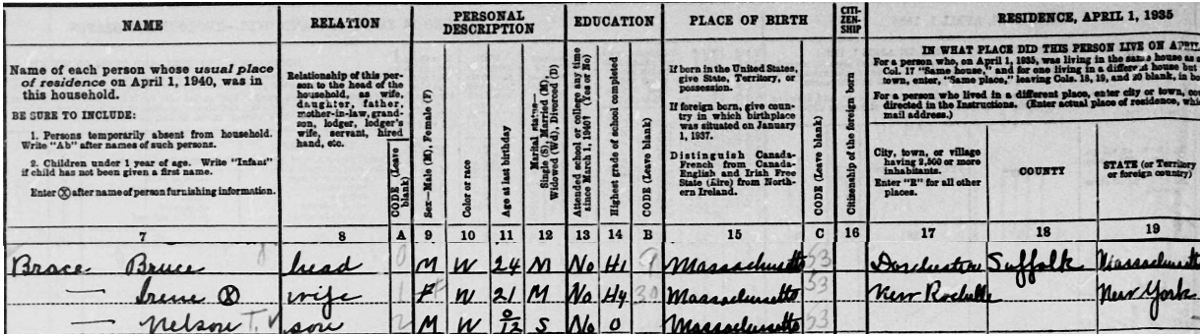 NAME RELATION PERSONAL DESCRIPTION EDUCATION PLACE OF BIRTH CITI-ZEN-SHIP RESIDENCE, APRIL 1, 1935
Name of each person whose usual place
of residence on April 1, 1940, was in
this household.
BE SURE TO INCLUDE:
1. Persons temporarily absent from household.
Write "Ab" after names of such persons.
2. Children under 1 year of age. Write "Infant"
if child has not been given a first name.
Enter Ⓧ after name of person furnishing information.
Relationship of this per-
son to the head of the
household, as wife,
daughter, father,
mother-in-law, grand-
son, lodger, lodger's
wife, servant, hired
hand, etc.
CODE (Leave blank)
Sex—Male (M), Female (F)
Color or race
Age at last birthday
Marital status—
Single (S), Married (M),
Widowed (Wd), Divorced (D)
Attended school or college any time
since March 1, 1940? (Yes or No)
Highest grade of school completed
CODE (Leave blank)
If born in the United States,
give State, Territory, or
possession.
If foreign born, give coun-
try in which birthplace
was situated on January
1, 1937.
Distinguish Canada-
French from Canada-
English and Irish Free
State (Eire) from North-
ern Ireland.
CODE (Leave blank)
Citizenship of the foreign born
IN WHAT PLACE DID THIS PERSON LIVE ON APRIL
For a person who, on April 1, 1935, was living in the same house as
Col. 17 "Same house," and for one living in a different house but
town, enter, "Same place," leaving Cols. 18, 19, and 20 blank, in
For a person who lived in a different place, enter city or town,
directed in the Instructions. (Enter actual place of residence,
mail address.)
City, town, or village
having 2,500 or more
inhabitants.
Enter "R" for all other
places.
COUNTY
STATE (or Territory
or foreign country)
7 8 A 9 10 11 12 13 14 B 15 C 16 17 18 19
Brace Bruce head 0 M W 24 M No H1 9 Massachusetts 53 Dorchester Suffolk Massachusetts
— Irene Ⓧ wife 1 F W 21 M No H4 30 Massachusetts 53 New Rochelle New York
— Nelson T. son 2 M W 0/12 S No 0 Massachusetts 53